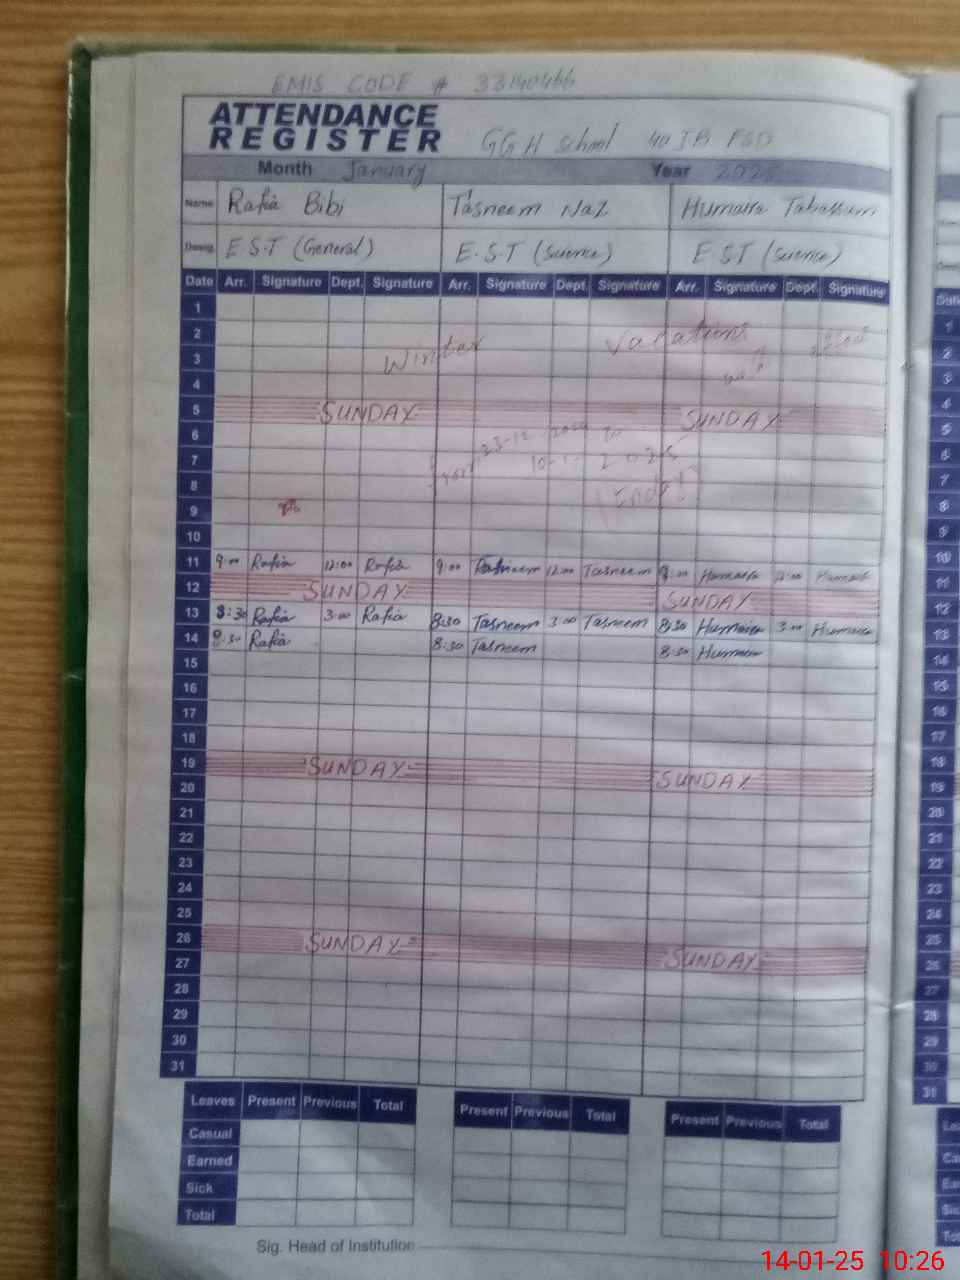 EMIS CODE # 33140466
ATTENDANCE
REGISTER GGH School 40 JB FSD
Month January Year 2025
Name Rafia Bibi Tasneem Naz Humaira Tabassum
Desig. E.S.T (General) E.S.T (Science) E.S.T (Science)
Date Arr. Signature Dept. Signature Arr. Signature Dept. Signature Arr. Signature Dept. Signature
1
2 Winter Vacations
3
4
5 SUNDAY SUNDAY
6 from 23-12-2024 To
7 10-1-2025
8 (Friday)
9
10
11 9:00 Rafia 12:00 Rafia 9:00 Tasneem 12:00 Tasneem 9:00 Humaira 12:00 Humaira
12 SUNDAY SUNDAY
13 8:30 Rafia 3:00 Rafia 8:30 Tasneem 3:00 Tasneem 8:30 Humaira 3:00 Humaira
14 8:30 Rafia 8:30 Tasneem 8:30 Humaira
15
16
17
18
19 SUNDAY SUNDAY
20
21
22
23
24
25
26 SUNDAY SUNDAY
27
28
29
30
31
Leaves Present Previous Total Present Previous Total Present Previous Total
Casual
Earned
Sick
Total
Sig. Head of Institution
14-01-25 10:26